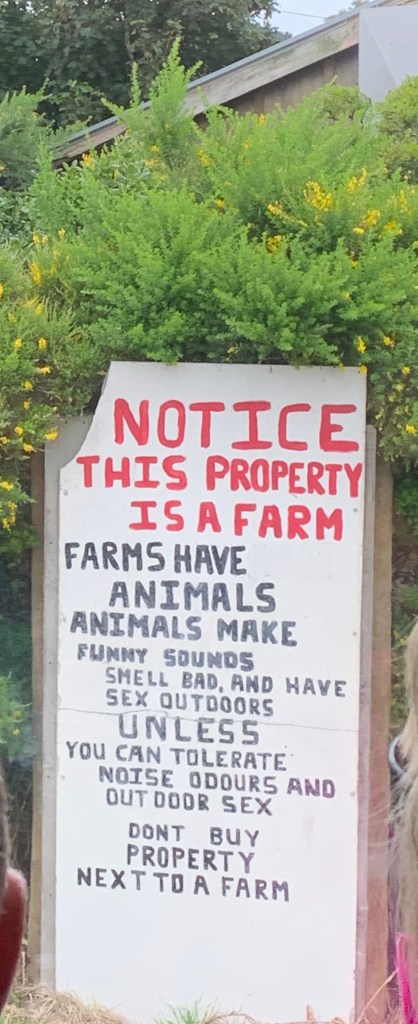 NOTICE
THIS PROPERTY
IS A FARM
FARMS HAVE
ANIMALS
ANIMALS MAKE
FUNNY SOUNDS
SMELL BAD, AND HAVE
SEX OUTDOORS
UNLESS
YOU CAN TOLERATE
NOISE ODOURS AND
OUTDOOR SEX
DONT BUY
PROPERTY
NEXT TO A FARM